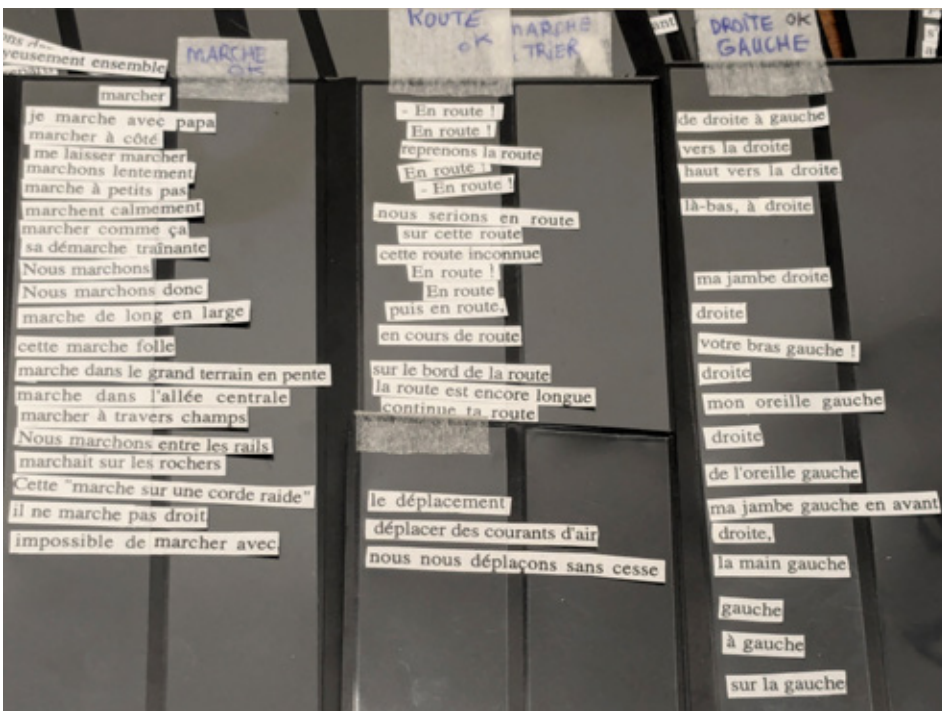 yeusement ensemble
MARCHE
OK
marcher
je marche avec papa
marcher à côté
me laisser marcher
marchons lentement
marche à petits pas
marchent calmement
marcher comme ça
sa démarche traînante
Nous marchons
Nous marchons donc
marche de long en large
cette marche folle
marche dans le grand terrain en pente
marche dans l'allée centrale
marcher à travers champs
Nous marchons entre les rails
marchait sur les rochers
Cette "marche sur une corde raide"
il ne marche pas droit
impossible de marcher avec
ROUTE
OK
MARCHE
TRIER
- En route !
En route !
reprenons la route
En route !
- En route !
nous serions en route
sur cette route
cette route inconnue
En route !
En route
puis en route,
en cours de route
sur le bord de la route
la route est encore longue
continue ta route
le déplacement
déplacer des courants d'air
nous nous déplaçons sans cesse
ant
DROITE OK
GAUCHE
de droite à gauche
vers la droite
haut vers la droite
là-bas, à droite
ma jambe droite
droite
votre bras gauche !
droite
mon oreille gauche
droite
de l'oreille gauche
ma jambe gauche en avant
droite,
la main gauche
gauche
à gauche
sur la gauche